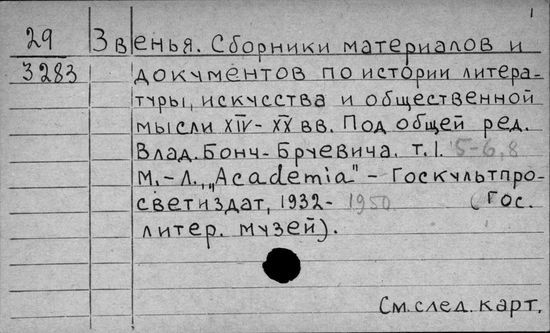 1
29 Звенья. Сборники материалов и
3283 документов по истории литера-
туры, искусства и общественной
мысли XIV-XX вв. Под общей ред.
Влад. Бонч-Бруевича. т.1. 5-6, 8
М.-Л., "Academia" - Госкультпро-
светиздат, 1932- 1950 (Гос.
литер. музей).
См. след. карт.